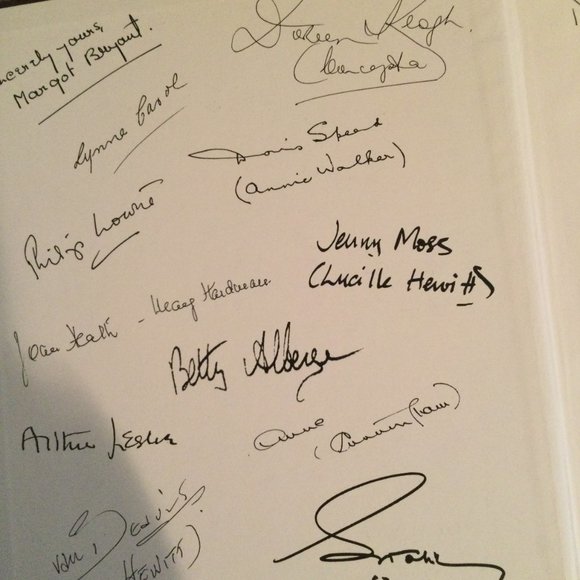 Sincerely yours,
Margot Bryant.
Doreen Keogh.
(Concepta)
Lynne Carol
Doris Speed
(Annie Walker)
Philip Lowrie
Jenny Moss
(Lucille Hewitt)
Joan Heath - Meg Hardman
Betty Alberge
Arthur Leslie
Anne
(Cunningham)
HEWITT)